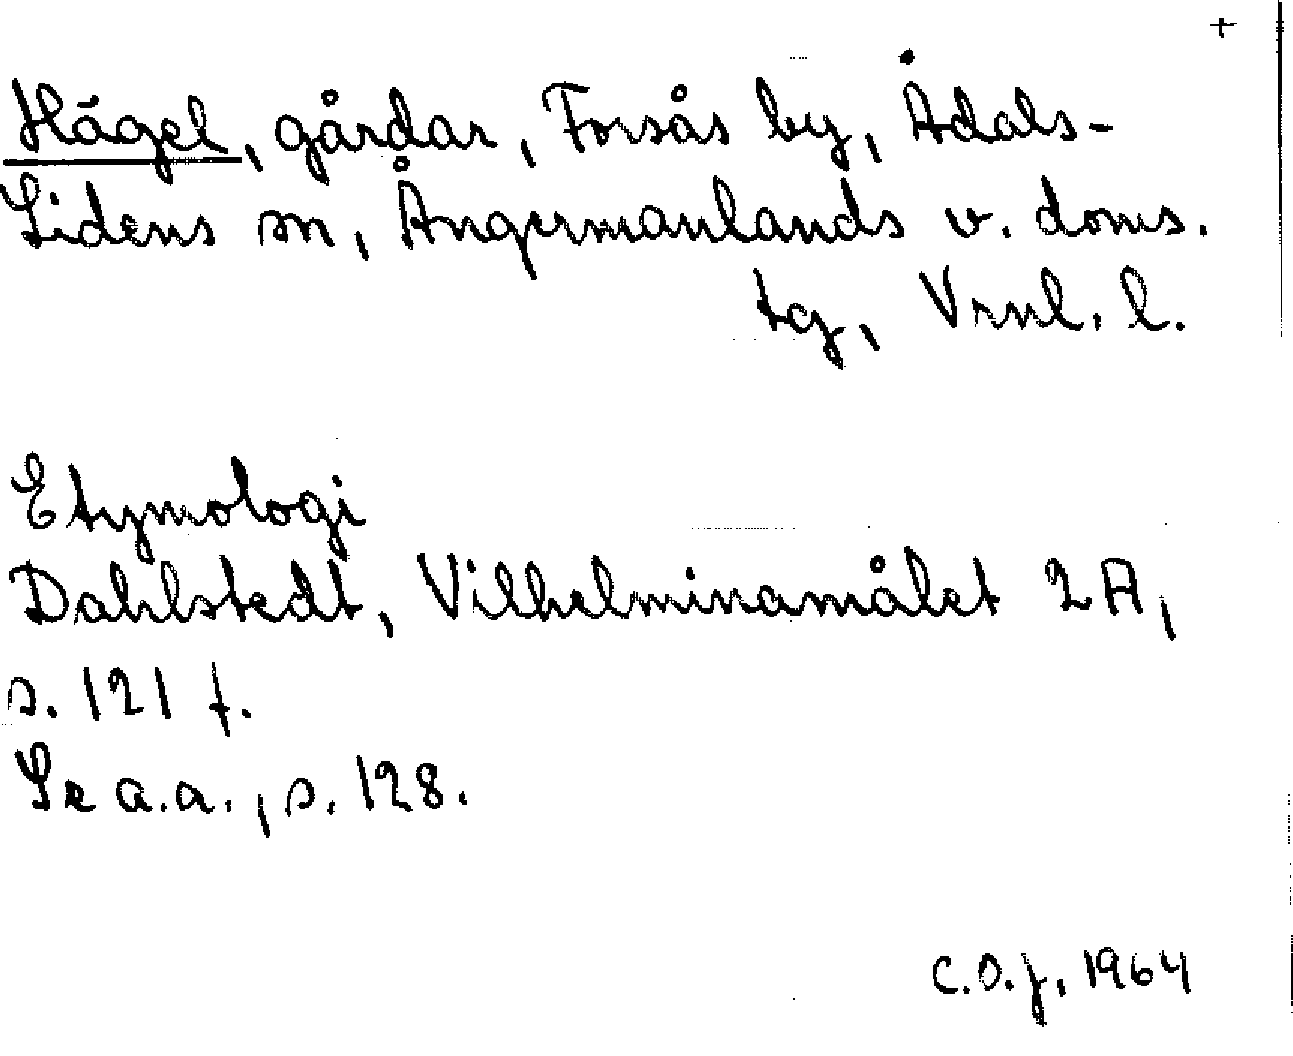 +
Hägel, gårdar, Forsås by, Ådals-
Lidens sn, Ångermanlands v. doms.
tg, Vrnl. l.
Etymologi
Dahlstedt, Vilhelminamålet 2A,
s. 121 f.
Se a.a., s. 128.
C.O.J. 1964